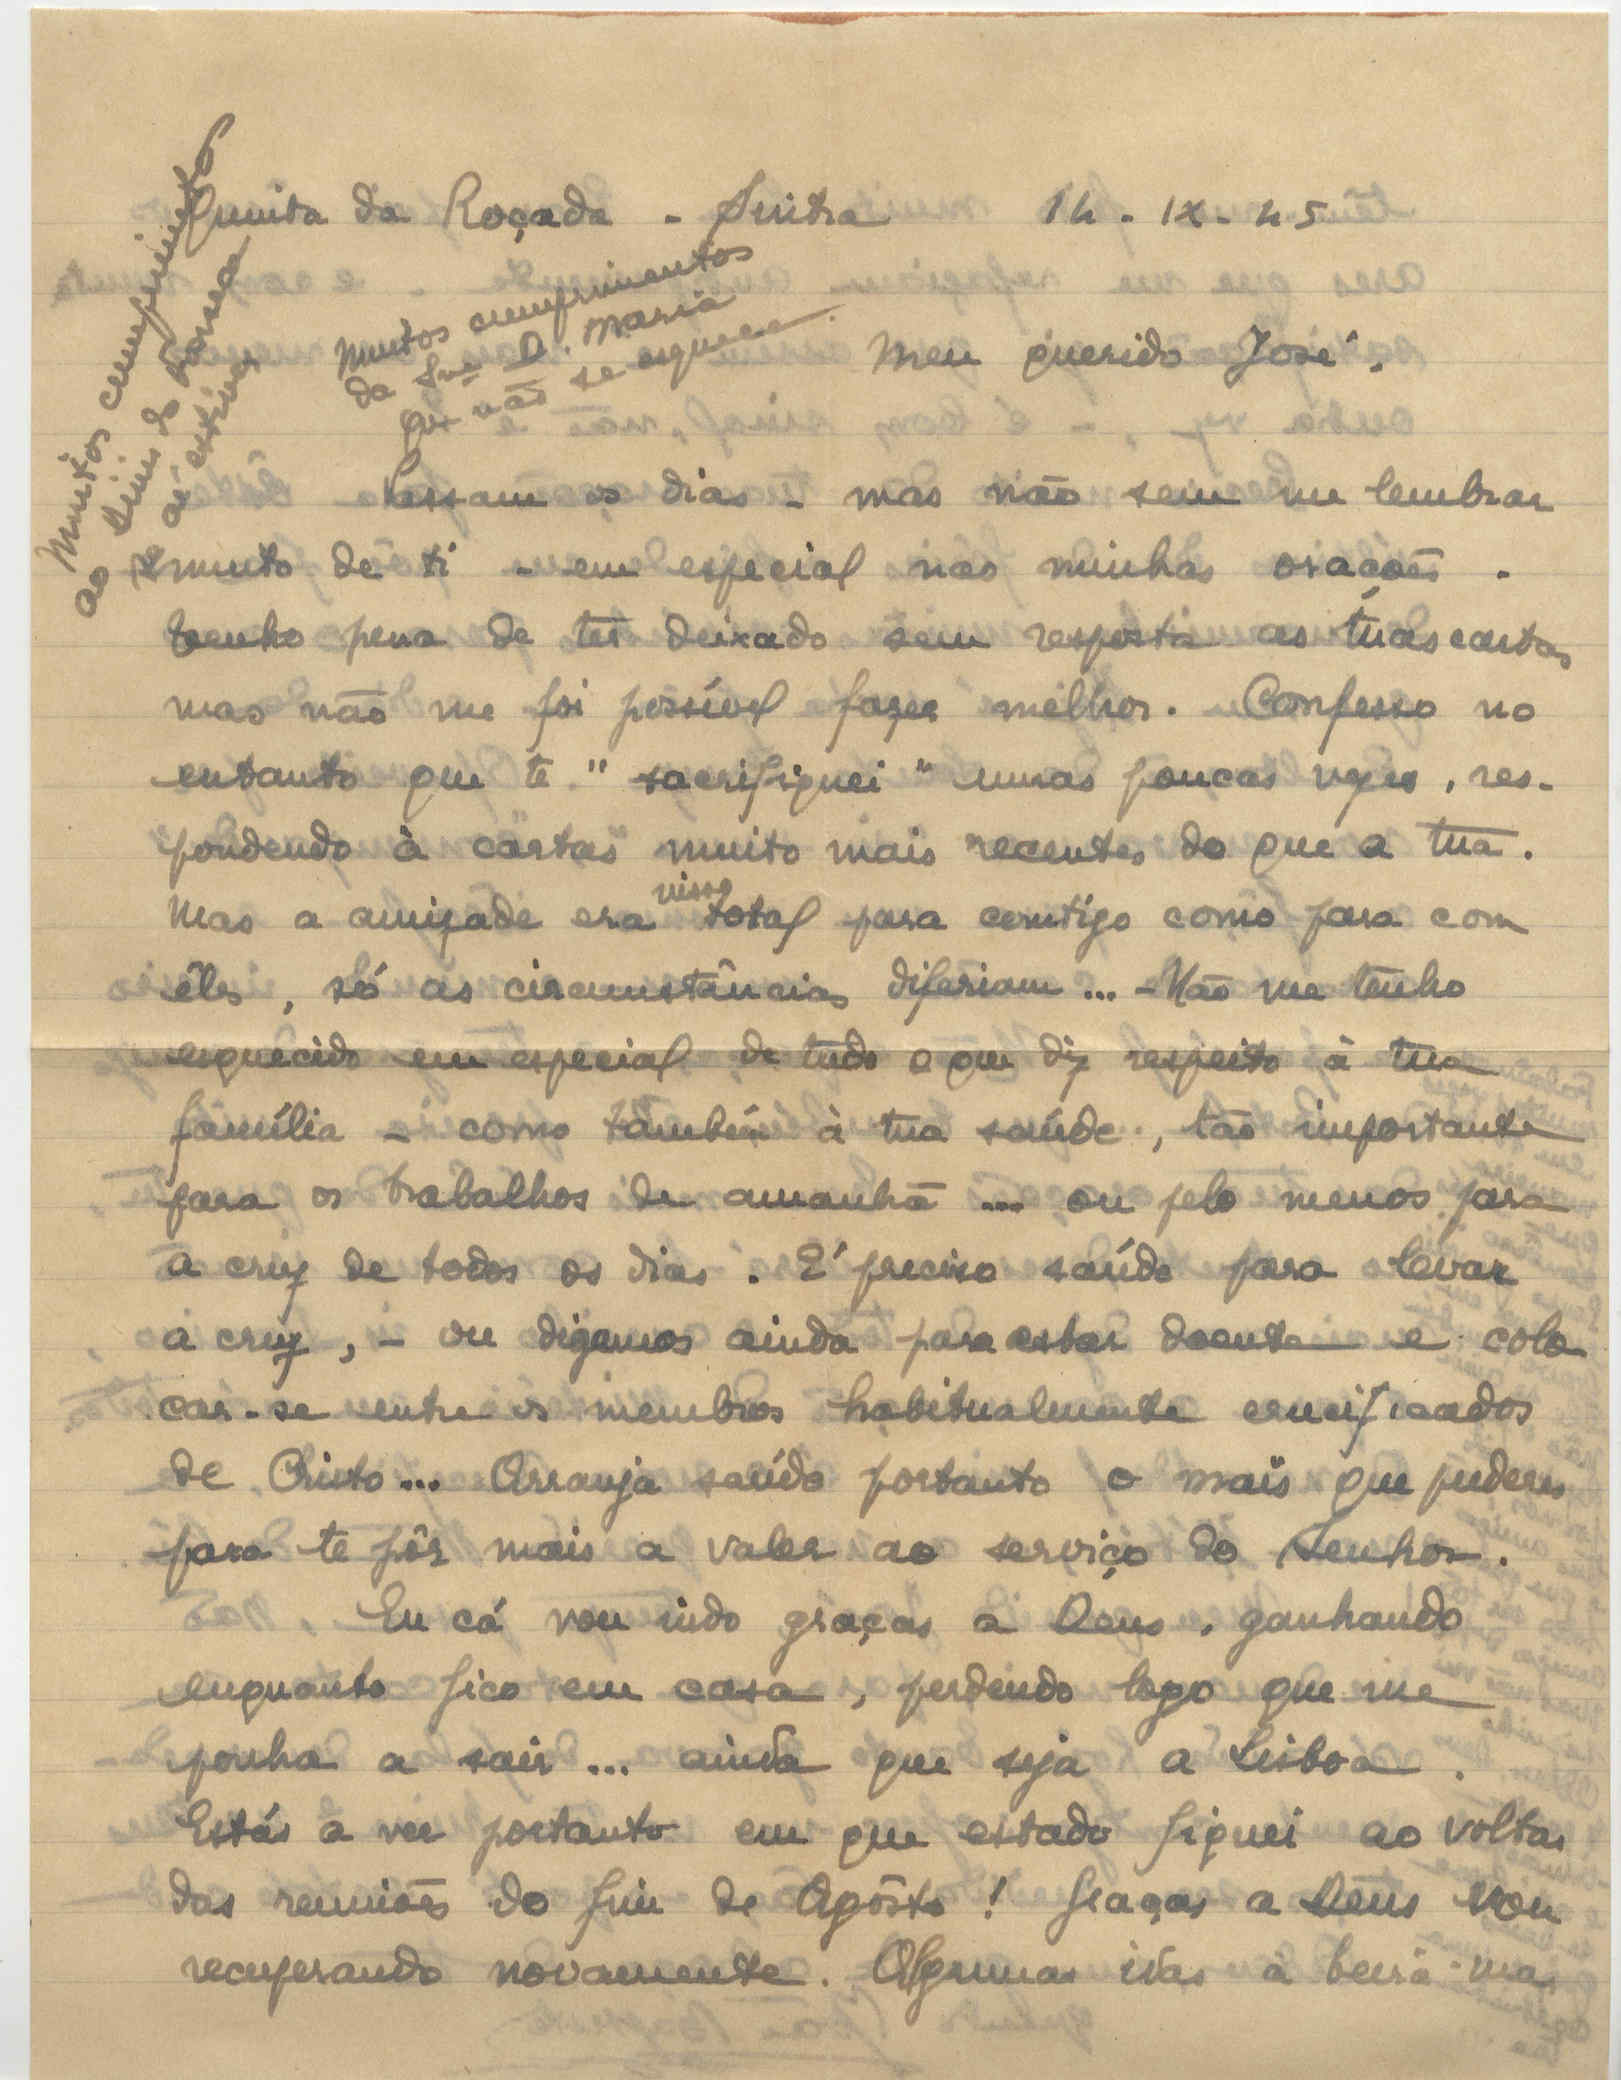 Quinta da Roçada - Sintra 14 - IX - 45
Muitos cumprimentos
da Sra. D. Maria
que não se esquece.
Muitos cumprimentos
ao
Meu querido José,
Passam os dias - mas não sem me lembrar
muito de ti - em especial nas minhas orações.
tenho pena de ter deixado sem resposta as tuas cartas
mas não me foi possível fazer melhor. Confesso no
entanto que te "sacrifiquei" umas poucas vezes, res-
pondendo à cartas muito mais recentes do que a tua.
Mas a amizade era nisso total para contigo como para com
êles, só as circumstâncias diferiam... - Não me tenho
esquecido em especial de tudo o que diz respeito à tua
família - como também à tua saúde, tão importante
para os trabalhos de amanhã ... ou pelo menos para
a cruz de todos os dias. É preciso saúde para levar
a cruz, - ou digamos ainda para estar doente e colo
car-se entre os membros habitualmente crucificados
de Cristo... Arranja saúde portanto o mais que puderes
para te pôr mais a valer ao serviço do Senhor.
Eu cá vou indo graças a Deus, ganhando
enquanto fico em casa, perdendo logo que me
ponha a sair ... ainda que seja a Lisboa.
Estás a ver portanto em que estado fiquei ao voltar
das reuniões do fim de Agôsto! Graças a Deus vou
recuperando novamente. Algumas idas à beira-mar